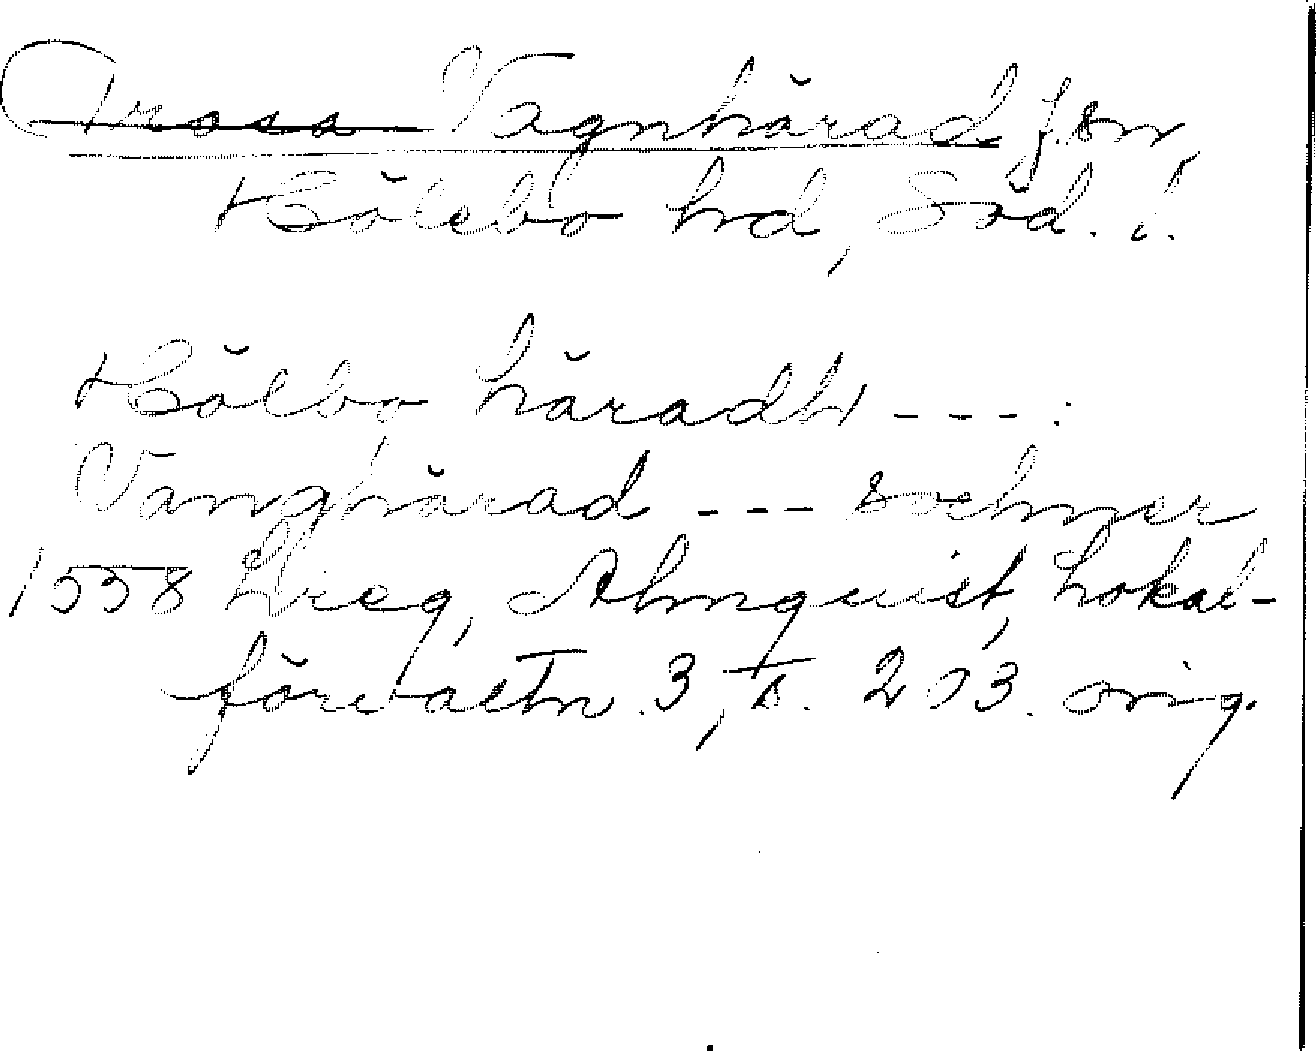 Trosa Vagnhärad f. sn
Hölebo hd, Söd. l.
Hölbo häradh ---:
Vanghärad --- sochner
1558 Lreg, Almquist, Lokal-
förvaltn. 3, s. 203. orig.